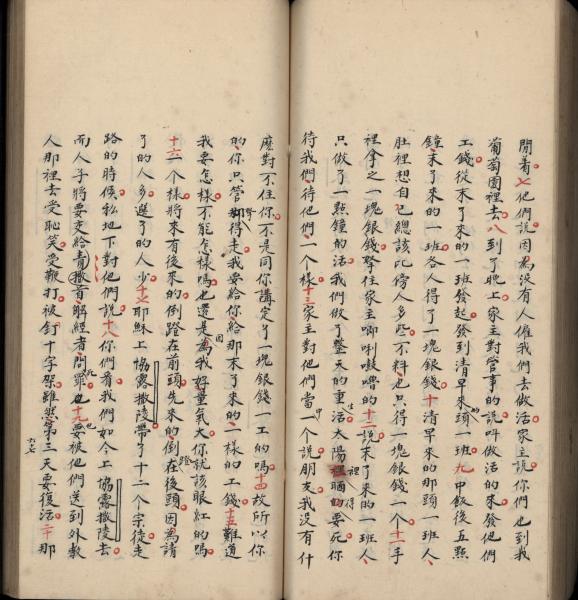 閒着七他們說因為没有人催我們去做活家主說你們也到我
葡萄園裡去八到了晚上家主對管事的說呌做活的來發他們
工錢從末了來的一班發起發到清早來頭一班九中飯後五點
鐘末了來的一班各人得了一塊銀錢十清早來的那頭一班人
肚裡想自己總該比傍人多些不料也只得一塊銀錢一个十一手
裡拿之一塊銀錢拏住家主唧唎鼓嘈的十二說末了來的一班人
只做了一點鐘的活我們做了整天的重活太陽裡晒的要死你
待我們待他們一个樣十三家主對他們當中一个說朋友我没有什
麽對不住你不是同你講定了一塊銀錢一工的嗎十四故所以你
的你只管拏得走我要給你給那末了來的一樣的工錢十五難道
我要怎樣不能怎樣嗎也還是因為我好量氣大你就該眼紅的嗎
十六一个樣將來有後來的倒蹬在前頭先來的倒在後頭因為請
了的人多選了的人少十七耶穌上協露撒陵帶了十二个宗徒走
路的時候私地下對他們說十八你們看我們如今上協露撒陵去
而人子將要交給責撒首解經者問死罪也十九也要被他們送到外教
人那裡去受恥笑受鞭打被釘十字架雖然第三天要復活二十那